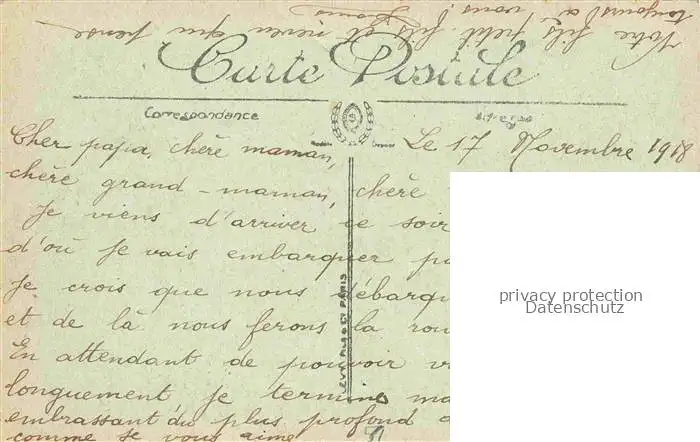 Votre fils, petit fils et neveu qui pense
toujours à vous !
Carte Postale
Correspondance
Adresse
Le 17 Novembre 1918
Cher papa, chère maman,
chère grand-maman, chère
Je viens d'arriver ce soir
d'où je vais embarquer
Je crois que nous débarqu
et de là nous ferons la rou
En attendant de pouvoir
longuement je termine ma
embrassant du plus profond
comme je vous aime
LEVY FILS ET Cie PARIS
privacy protection
Datenschutz